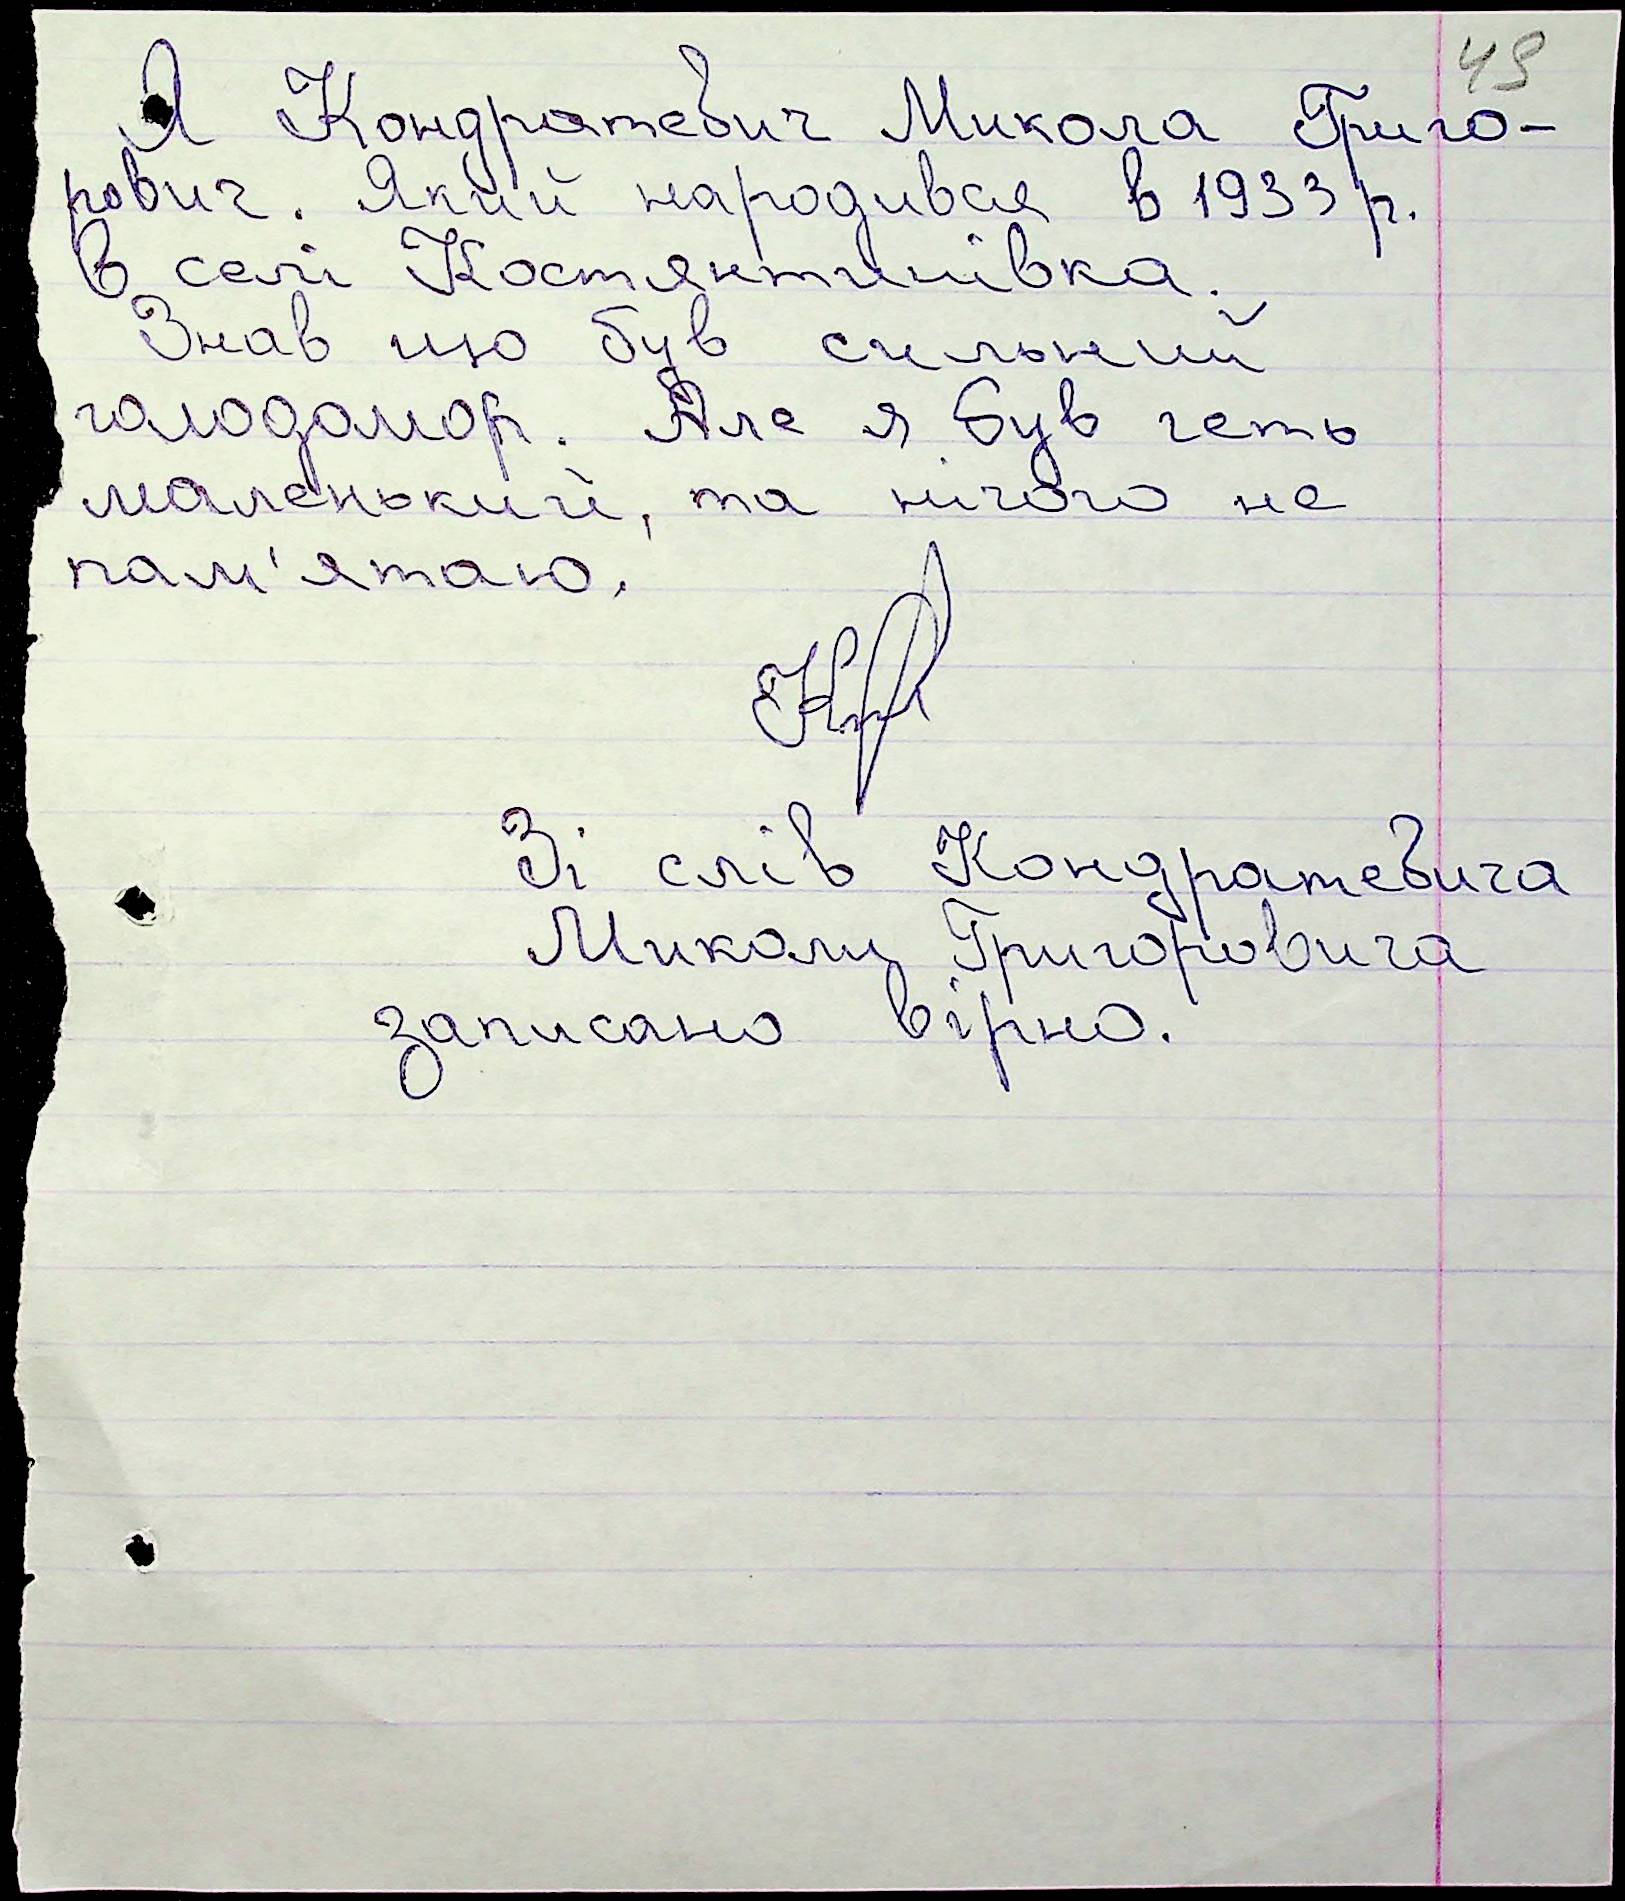 49
Я Кондратевич Микола Григо-
рович. Який народився в 1933 р.
В селі Костянтинівка.
Знав що був сильний
голодомор. Але я був геть
маленький, та нічого не
пам'ятаю.
Зі слів Кондратевича
Миколи Григоровича
записано вірно.